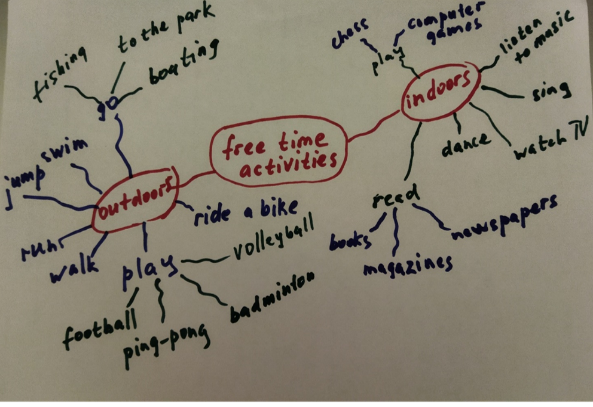 free time
activities
outdoors
go
fishing
to the park
boating
swim
jump
run
walk
play
football
ping-pong
badminton
volleyball
ride a bike
indoors
play
chess
computer
games
listen
to music
sing
watch TV
dance
read
books
magazines
newspapers